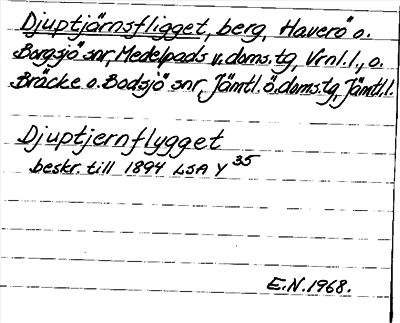 Djuptjärnsfligget, berg, Haverö o.
Borgsjö snr, Medelpads v. doms.tg, Vrnl.l., o.
Bräcke o. Bodsjö snr, Jämtl. ö. doms.tg, Jämtl.l.
Djuptjernflygget
beskr. till 1894 LSA Y 35
E.N. 1968.